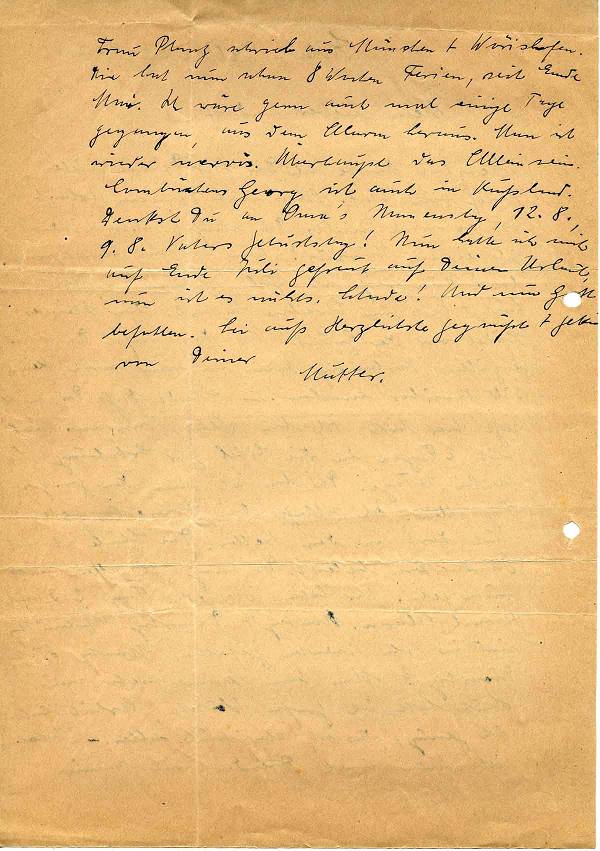 Frau Plantz schrieb aus München + Wörishofen.
Sie hat nun schon 8 Wochen Ferien, seit Ende
Mai. Ich wäre gern auch mal einige Tage
gegangen, aus dem Alarm heraus. Man ist
wieder nervös. Überhaupt das Alleinsein.
Georg ist auch in Rußland.
Denkst Du an Oma's Namenstag, 12.8.,
9.8. Vaters Geburtstag! Nun hatte ich mich
auf Ende Juli gefreut auf Deinen Urlaub,
nun ist es nichts. Schade! Und nun Gott
befohlen. Sei aufs Herzlichste gegrüßt +
von Deiner
Mutter.